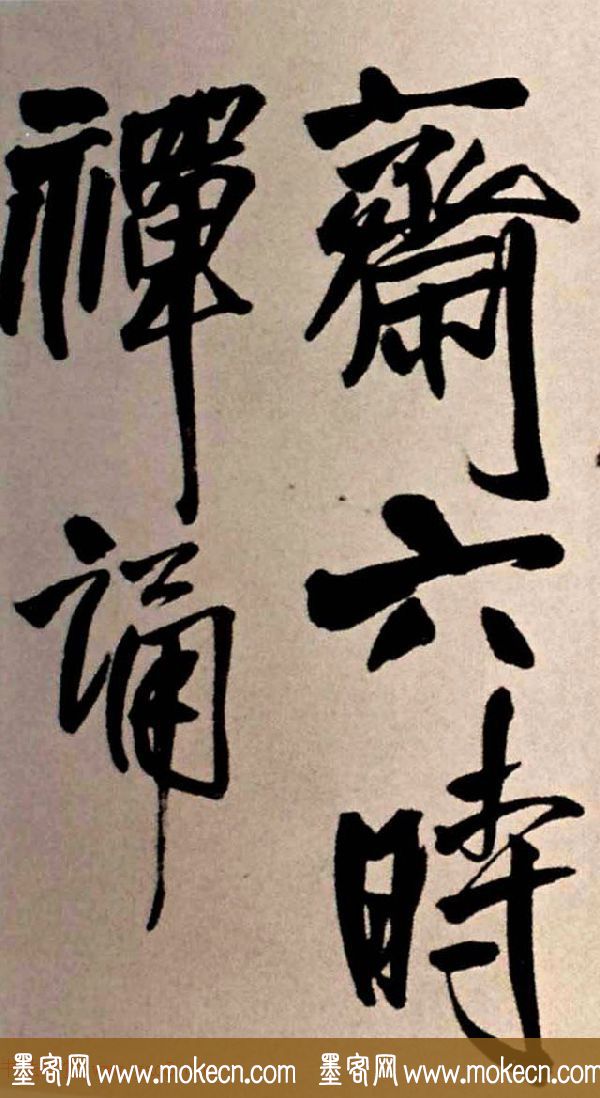 齋六時
禪誦
墨客网 www.mokecn.com 墨客网 www.mokecn.com